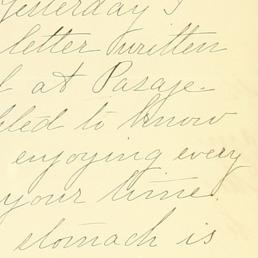 Yesterday I
letter written
at Pasaje.
to know
enjoying every
your time.
stomach is